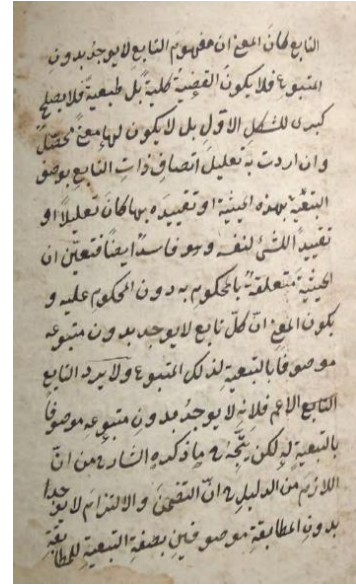 التابع كان المعنى ان مفهوم التابع لا يوجد بدون
المتبوع فلا يكون القضية كلية بل طبيعية فلا يصلح
كبرى للشكل الاول بل لا يكون لها معنى محصل
وان اردت به تعليل اتصاف ذات التابع بوصف
التبعية بهذه الحيثية او تقييده بها كان تعليلا او
تقييدا للشئ لنفسه وهو فاسد ايضا فتعين ان
الحيثية متعلقة بالمحكوم به دون المحكوم عليه و
يكون المعنى ان كل تابع لا يوجد بدون متبوعه
موصوفا بالتبعية لذلك المتبوع ولا يرد التابع
التابع الاعم فلانه لا يوجد بدون متبوعه موصوفا
بالتبعية له لكن يتجه ما ذكره الشارح من ان
اللازم من الدليل ان التضمن والالتزام لا يوجدا
بدون المطابقة موصوفين بصفة التبعية للمطابقة